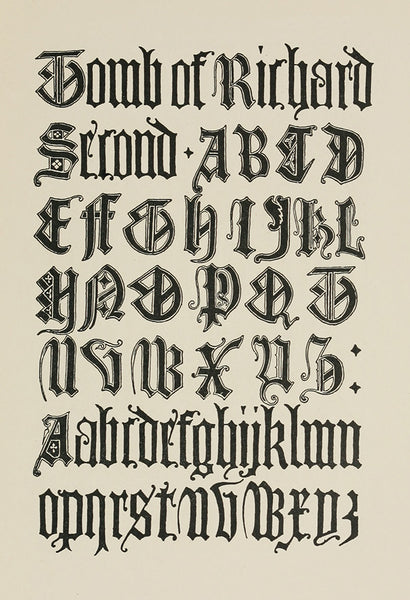 Tomb of Richard
Second · ABCD
EFGHIJKL
MNOPQT
UVWXYZ:
Aabcdefghijklmn
opqrstUVWXYZ